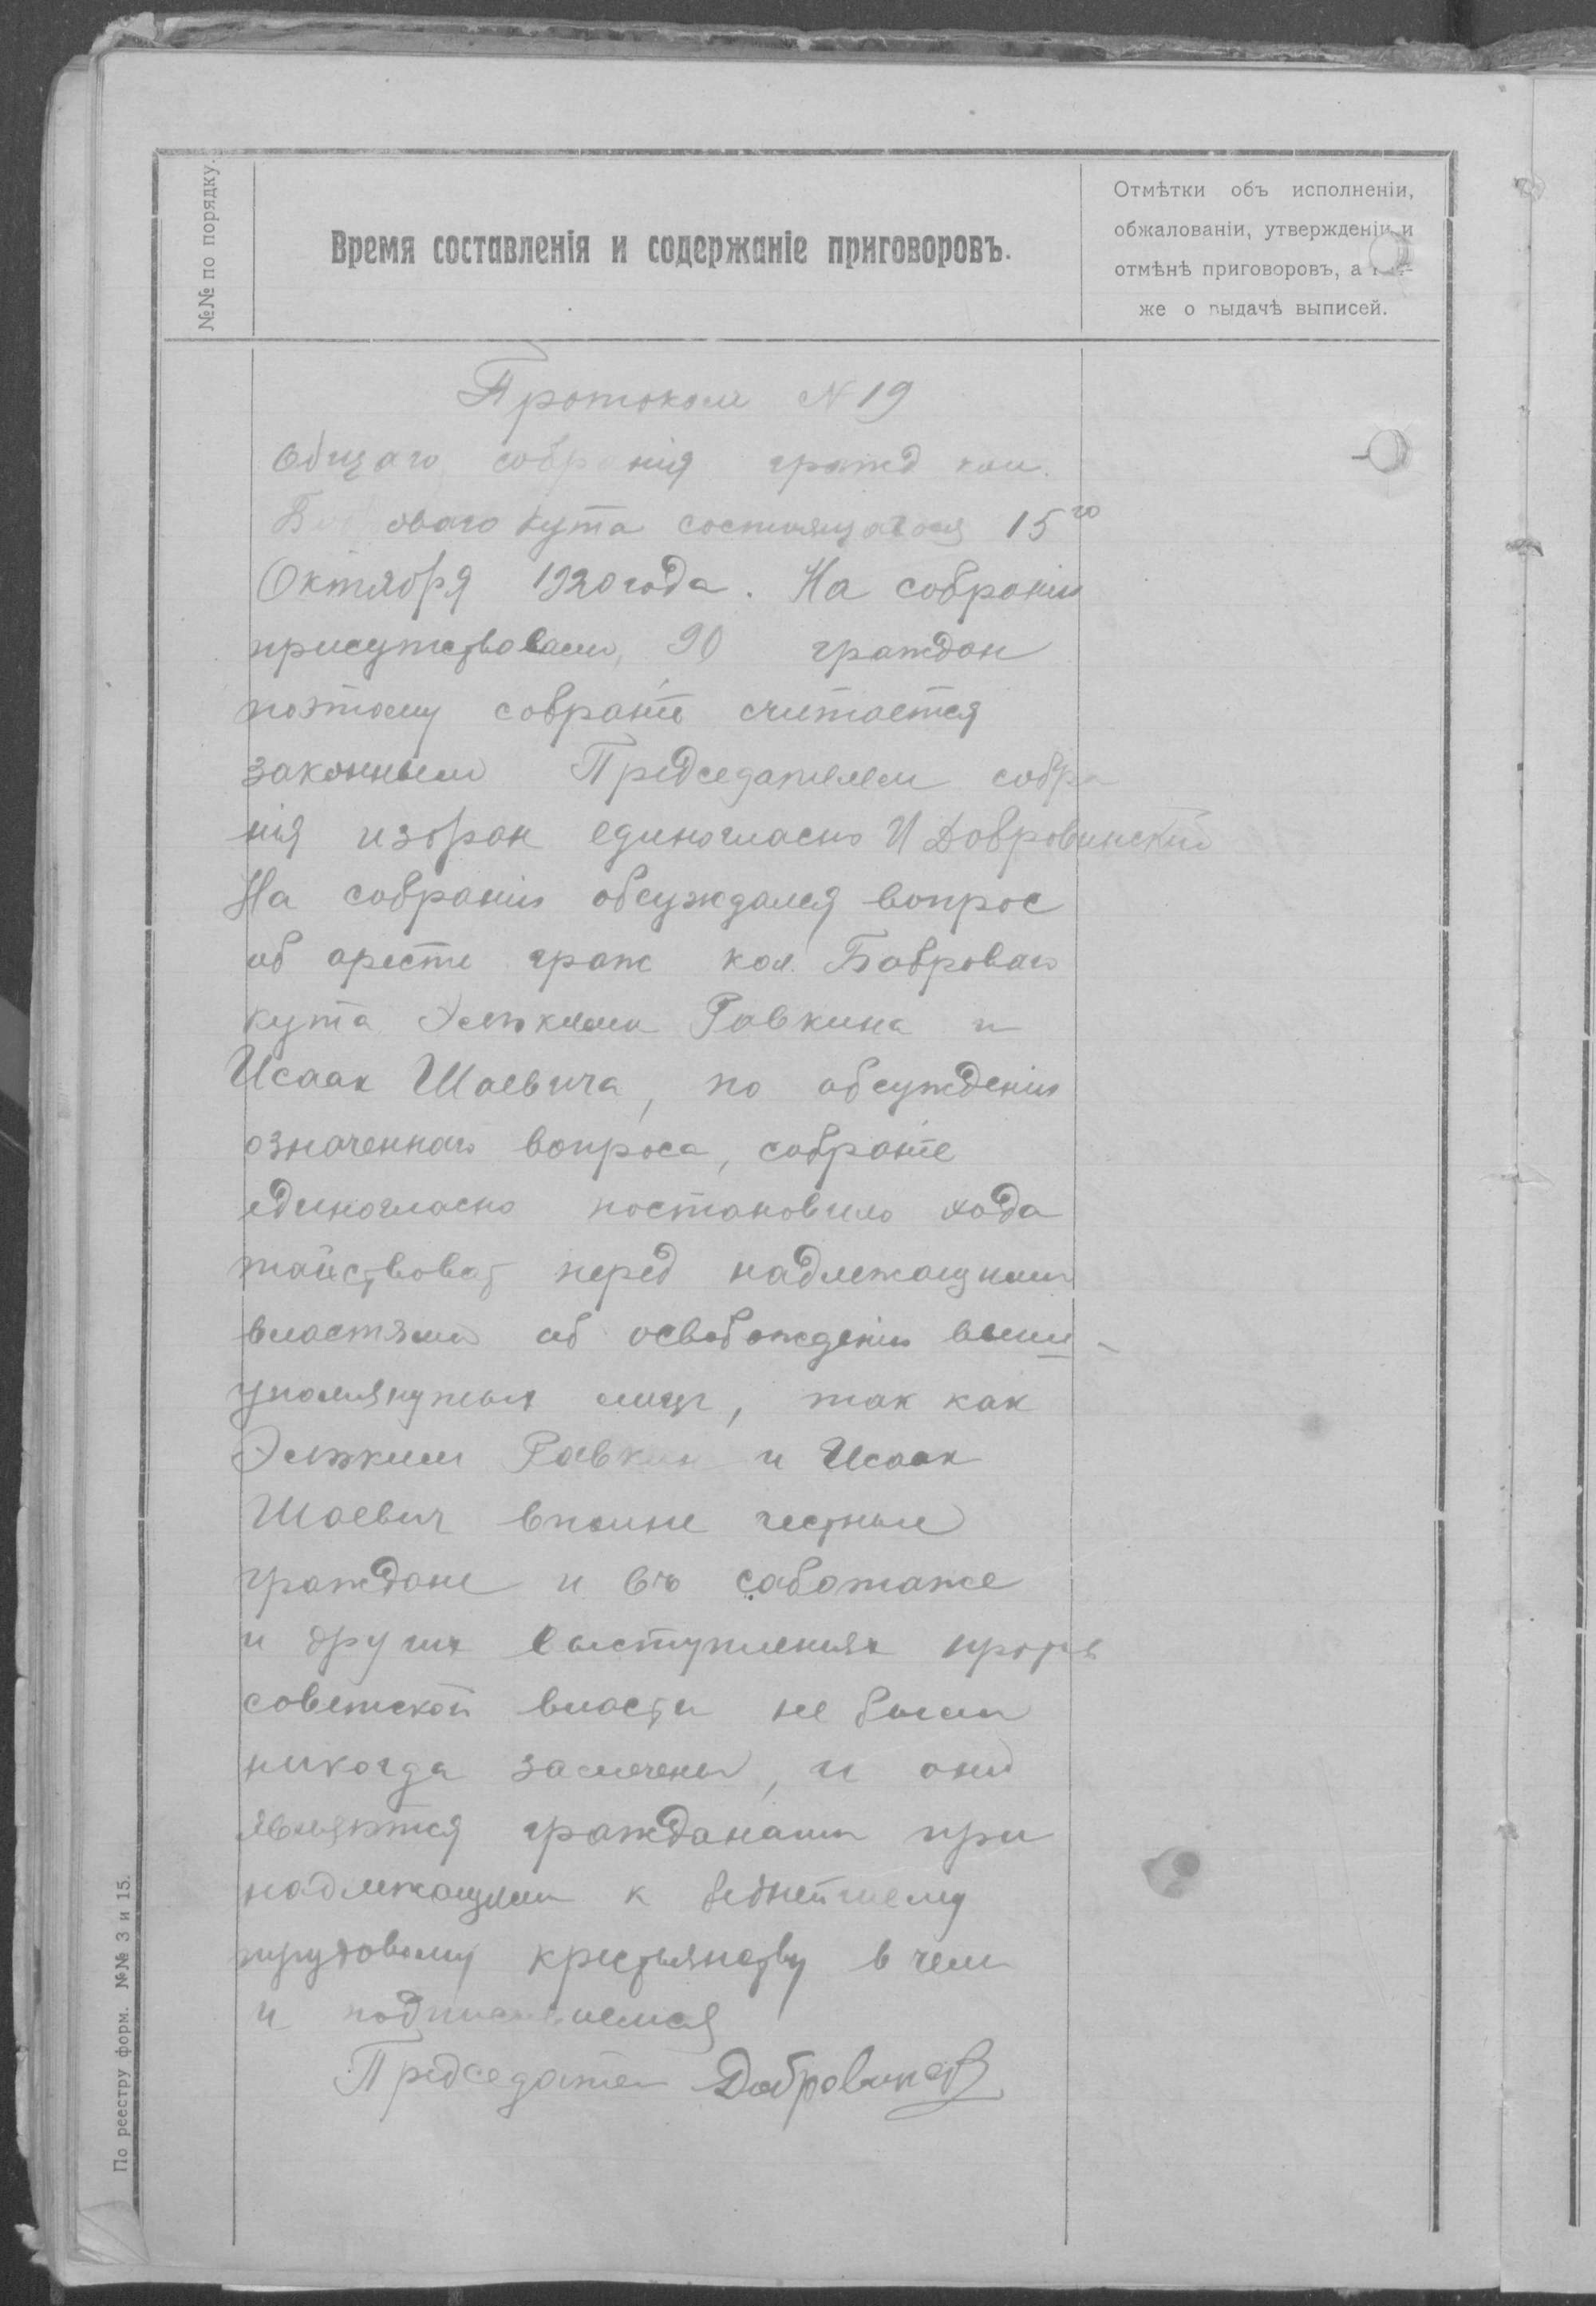 №№ по порядку.
Время составленія и содержаніе приговоровъ.
Отмѣтки объ исполненіи,
обжалованіи, утвержденіи и
отмѣнѣ приговоровъ, а
же о выдачѣ выписей.
Протокол N 19
Общаго собранія гражд кол.
оваго Кута состоящагося 15го
Октября 1920 года. На собраніи
присутствовали, 90 граждан
поэтому собраніе считается
законным Председателем собра
нія избран единогласно И Добровинский
На собраніи обсуждался вопрос
об аресте граж кол. Бобрового
Кута Рабкина и
Исаак Шаевича, по обсужденіи
означеннаго вопроса, собраніе
единогласно постановило хода
тайствоват перед надлежащими
властями об освобожденіи выше-
упомянутых лиц, так как
Рабкин и Исаак
Шаевич вполне честные
граждане и въ саботаже
и других выступлениях против
советской власти не были
никогда замечены, и они
являются гражданами при
надлежащими к беднейшему
трудовому крестьянству в чем
и подписываемся
Председател Добровинск
По реестру форм. №№ 3 и 15.